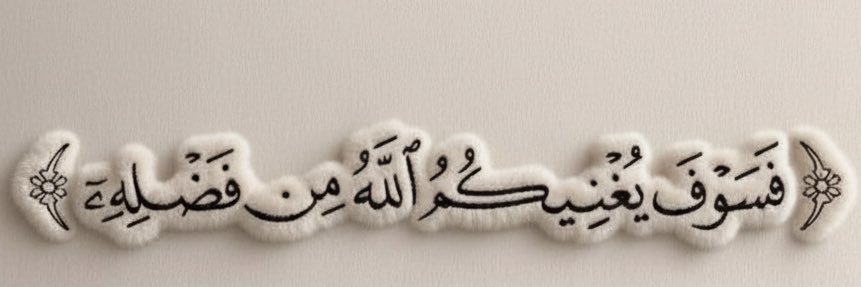 ﴿فَسَوْفَ يُغْنِيكُمُ ٱللَّهُ مِن فَضْلِهِۦٓ﴾